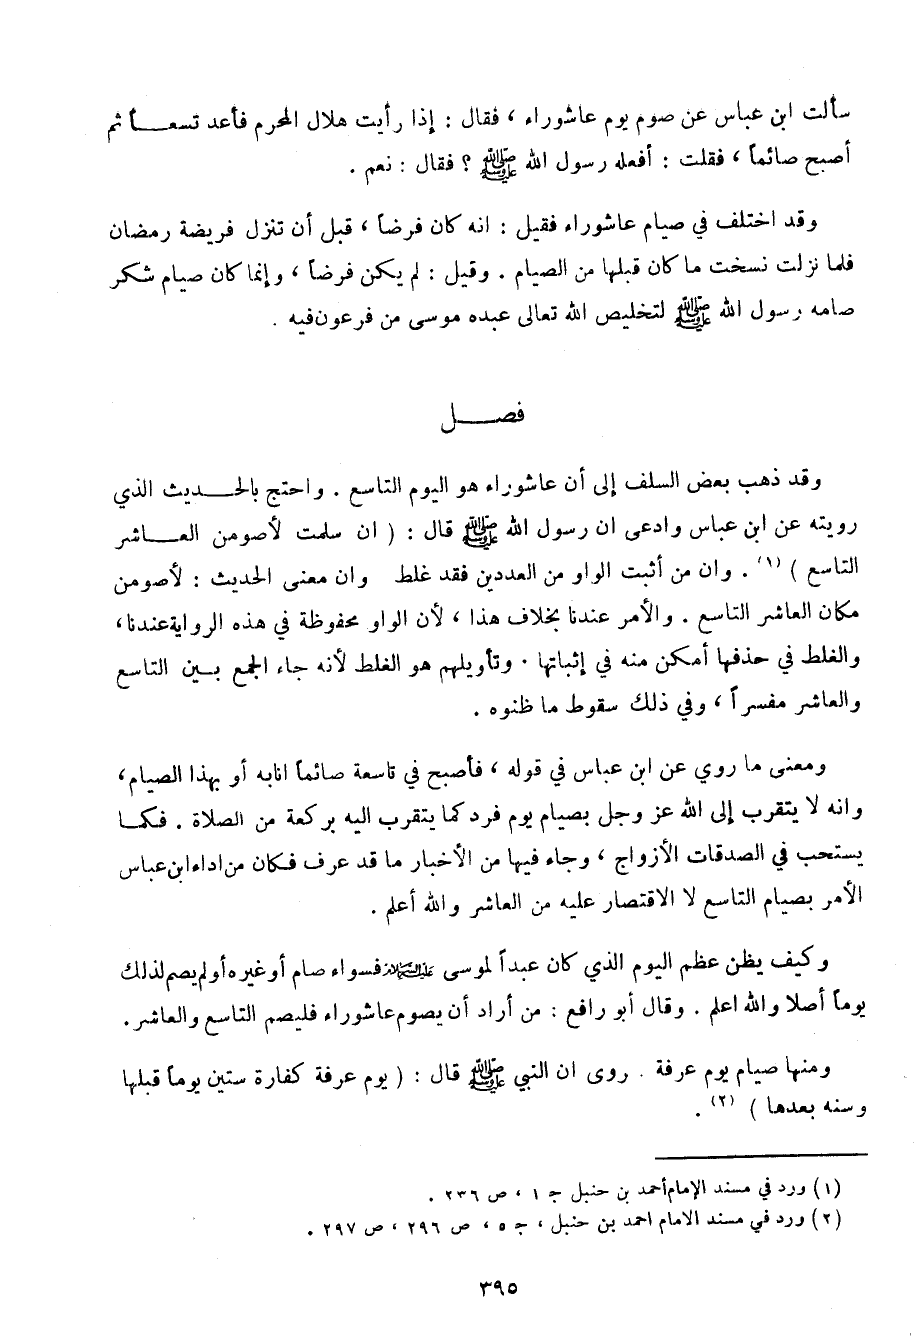 سألت ابن عباس عن صوم يوم عاشوراء ، فقال : إذا رأيت هلال المحرم فأعد تسعــاً ثم
أصبح صائماً ، فقلت : أفعله رسول الله ﷺ ؟ فقال : نعم .
وقد اختلف في صيام عاشوراء فقيل : انه كان فرضاً ، قبل أن تنزل فريضة رمضان
فلما نزلت نسخت ما كان قبلها من الصيام . وقيل : لم يكن فرضاً ، وإنما كان صيام شكر
صامه رسول الله ﷺ لتخليص الله تعالى عبده موسى من فرعون فيه .
فصــــل
وقد ذهب بعض السلف إلى أن عاشوراء هو اليوم التاسع . واحتج بالحـــديث الذي
رويته عن ابن عباس وادعى ان رسول الله ﷺ قال : ( ان سلمت لأصومن العــاشر
التاسع ) (١) . وان من أثبت الواو من العددين فقد غلط وان معنى الحديث : لأصومن
مكان العاشر التاسع . والأمر عندنا بخلاف هذا ، لأن الواو محفوظة في هذه الرواية عندنا ،
والغلط في حذفها أمكن منه في إثباتها . وتأويلهم هو الغلط لأنه جاء الجمع بــين التاسع
والعاشر مفسراً ، وفي ذلك سقوط ما ظنوه .
ومعنى ما روي عن ابن عباس في قوله ، فأصبح في تاسعة صائماً انابه أو بهذا الصيام ،
وانه لا يتقرب إلى الله عز وجل بصيام يوم فرد كما يتقرب اليه بركعة من الصلاة . فكمــا
يستحب في الصدقات الأزواج ، وجاء فيها من الأخبار ما قد عرف فكان من اداء ابن عباس
الأمر بصيام التاسع لا الاقتصار عليه من العاشر والله أعلم .
وكيف يظن عظم اليوم الذي كان عبداً لموسى عليه السلام فسواء صام أو غيره أو لم يصم لذلك
يوماً أصلا والله اعلم . وقال أبو رافع : من أراد أن يصوم عاشوراء فليصم التاسع والعاشر .
ومنها صيام يوم عرفة . روى ان النبي ﷺ قال : ( يوم عرفة كفارة ستين يوماً قبلها
وسنه بعدها ) (٢) .
(١) ورد في مسند الإمام أحمد بن حنبل جـ ١ ، ص ٢٣٦ .
(٢) ورد في مسند الامام احمد بن حنبل ، جـ ٥ ، ص ٢٩٦ ، ص ٢٩٧ .
٣٩٥